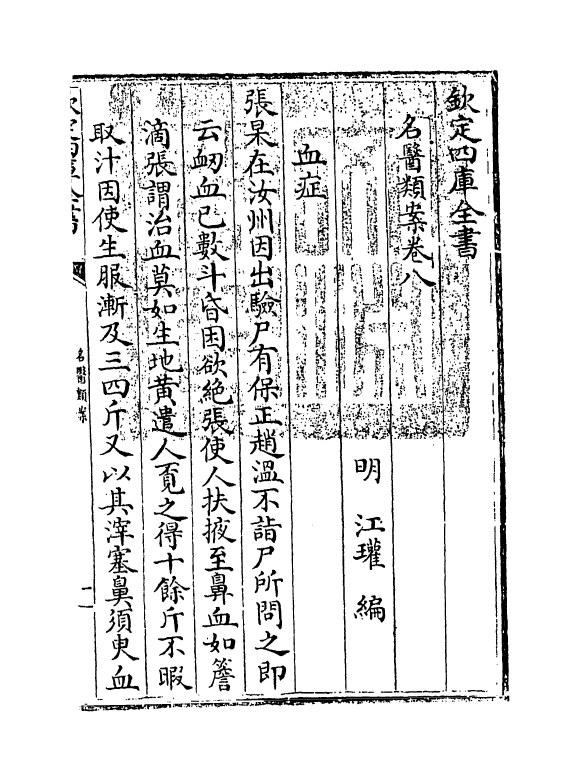 欽定四庫全書
名醫類案卷八
明　江瓘　編
血症
張杲在汝州因出驗尸有保正趙溫不詣尸所問之即
云衂血已數斗昏困欲絶張使人扶掖至鼻血如簷
滴張謂治血莫如生地黄遣人覔之得十餘斤不暇
取汁因使生服漸及三四斤又以其滓塞鼻須臾血
欽定四庫全書
名醫類案
一